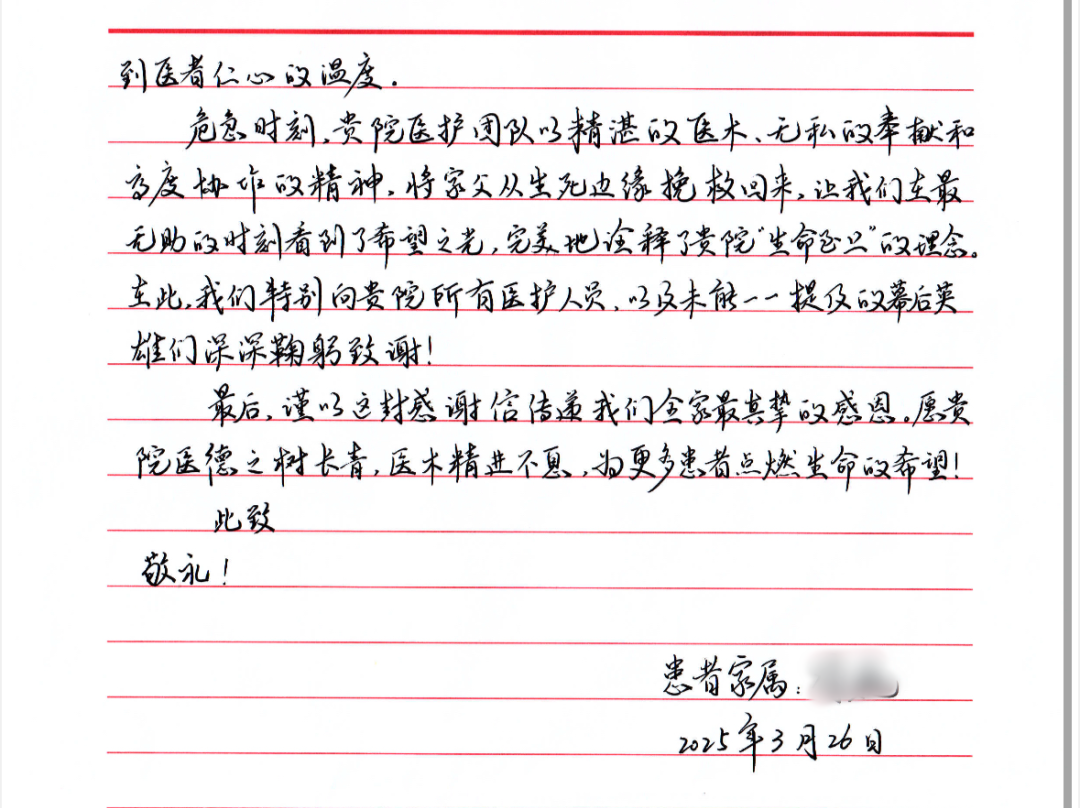 到医者仁心的温度.
危急时刻,贵院医护团队以精湛的医术、无私的奉献和
高度协作的精神,将家父从生死边缘挽救回来,让我们在最
无助的时刻看到了希望之光,完美地诠释了贵院“生命至上”的理念。
在此,我们特别向贵院所有医护人员、以及未能一一提及的幕后英
雄们深深鞠躬致谢!
最后,谨以这封感谢信传递我们全家最真挚的感恩。愿贵
院医德之树长青,医术精进不息,为更多患者点燃生命的希望!
此致
敬礼!
患者家属:
2025年3月26日